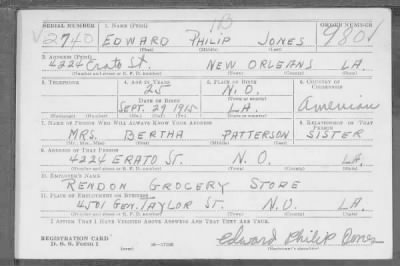 SERIAL NUMBER 1. NAME (Print) 1B ORDER NUMBER
√ 2740 EDWARD PHILIP JONES 980
(First) (Middle) (Last)
2. ADDRESS (Print)
4224 Erato St. NEW ORLEANS LA.
(Number and street or R. F. D. number) (Town) (County) (State)
3. TELEPHONE 4. AGE IN YEARS 5. PLACE OF BIRTH 6. COUNTRY OF CITIZENSHIP
25 N.O.
DATE OF BIRTH (Town or county)
SEPT. 29 1915 LA. American
(Mo.) (Day) (Yr.) (State or country)
7. NAME OF PERSON WHO WILL ALWAYS KNOW YOUR ADDRESS 8. RELATIONSHIP OF THAT PERSON
MRS. BERTHA PATTERSON SISTER
(Mr., Mrs., Miss) (First) (Middle) (Last)
9. ADDRESS OF THAT PERSON
4224 ERATO ST. N.O. LA.
(Number and street or R. F. D. number) (Town) (County) (State)
10. EMPLOYER'S NAME
RENDON GROCERY STORE
11. PLACE OF EMPLOYMENT OR BUSINESS
4501 GEN. TAYLOR ST. N.O. LA.
(Number and street or R. F. D. number) (Town) (County) (State)
I AFFIRM THAT I HAVE VERIFIED ABOVE ANSWERS AND THAT THEY ARE TRUE.
REGISTRATION CARD
D. S. S. FORM 1 (over) 16—17105 Edward Philip Jones
(Registrant's signature)